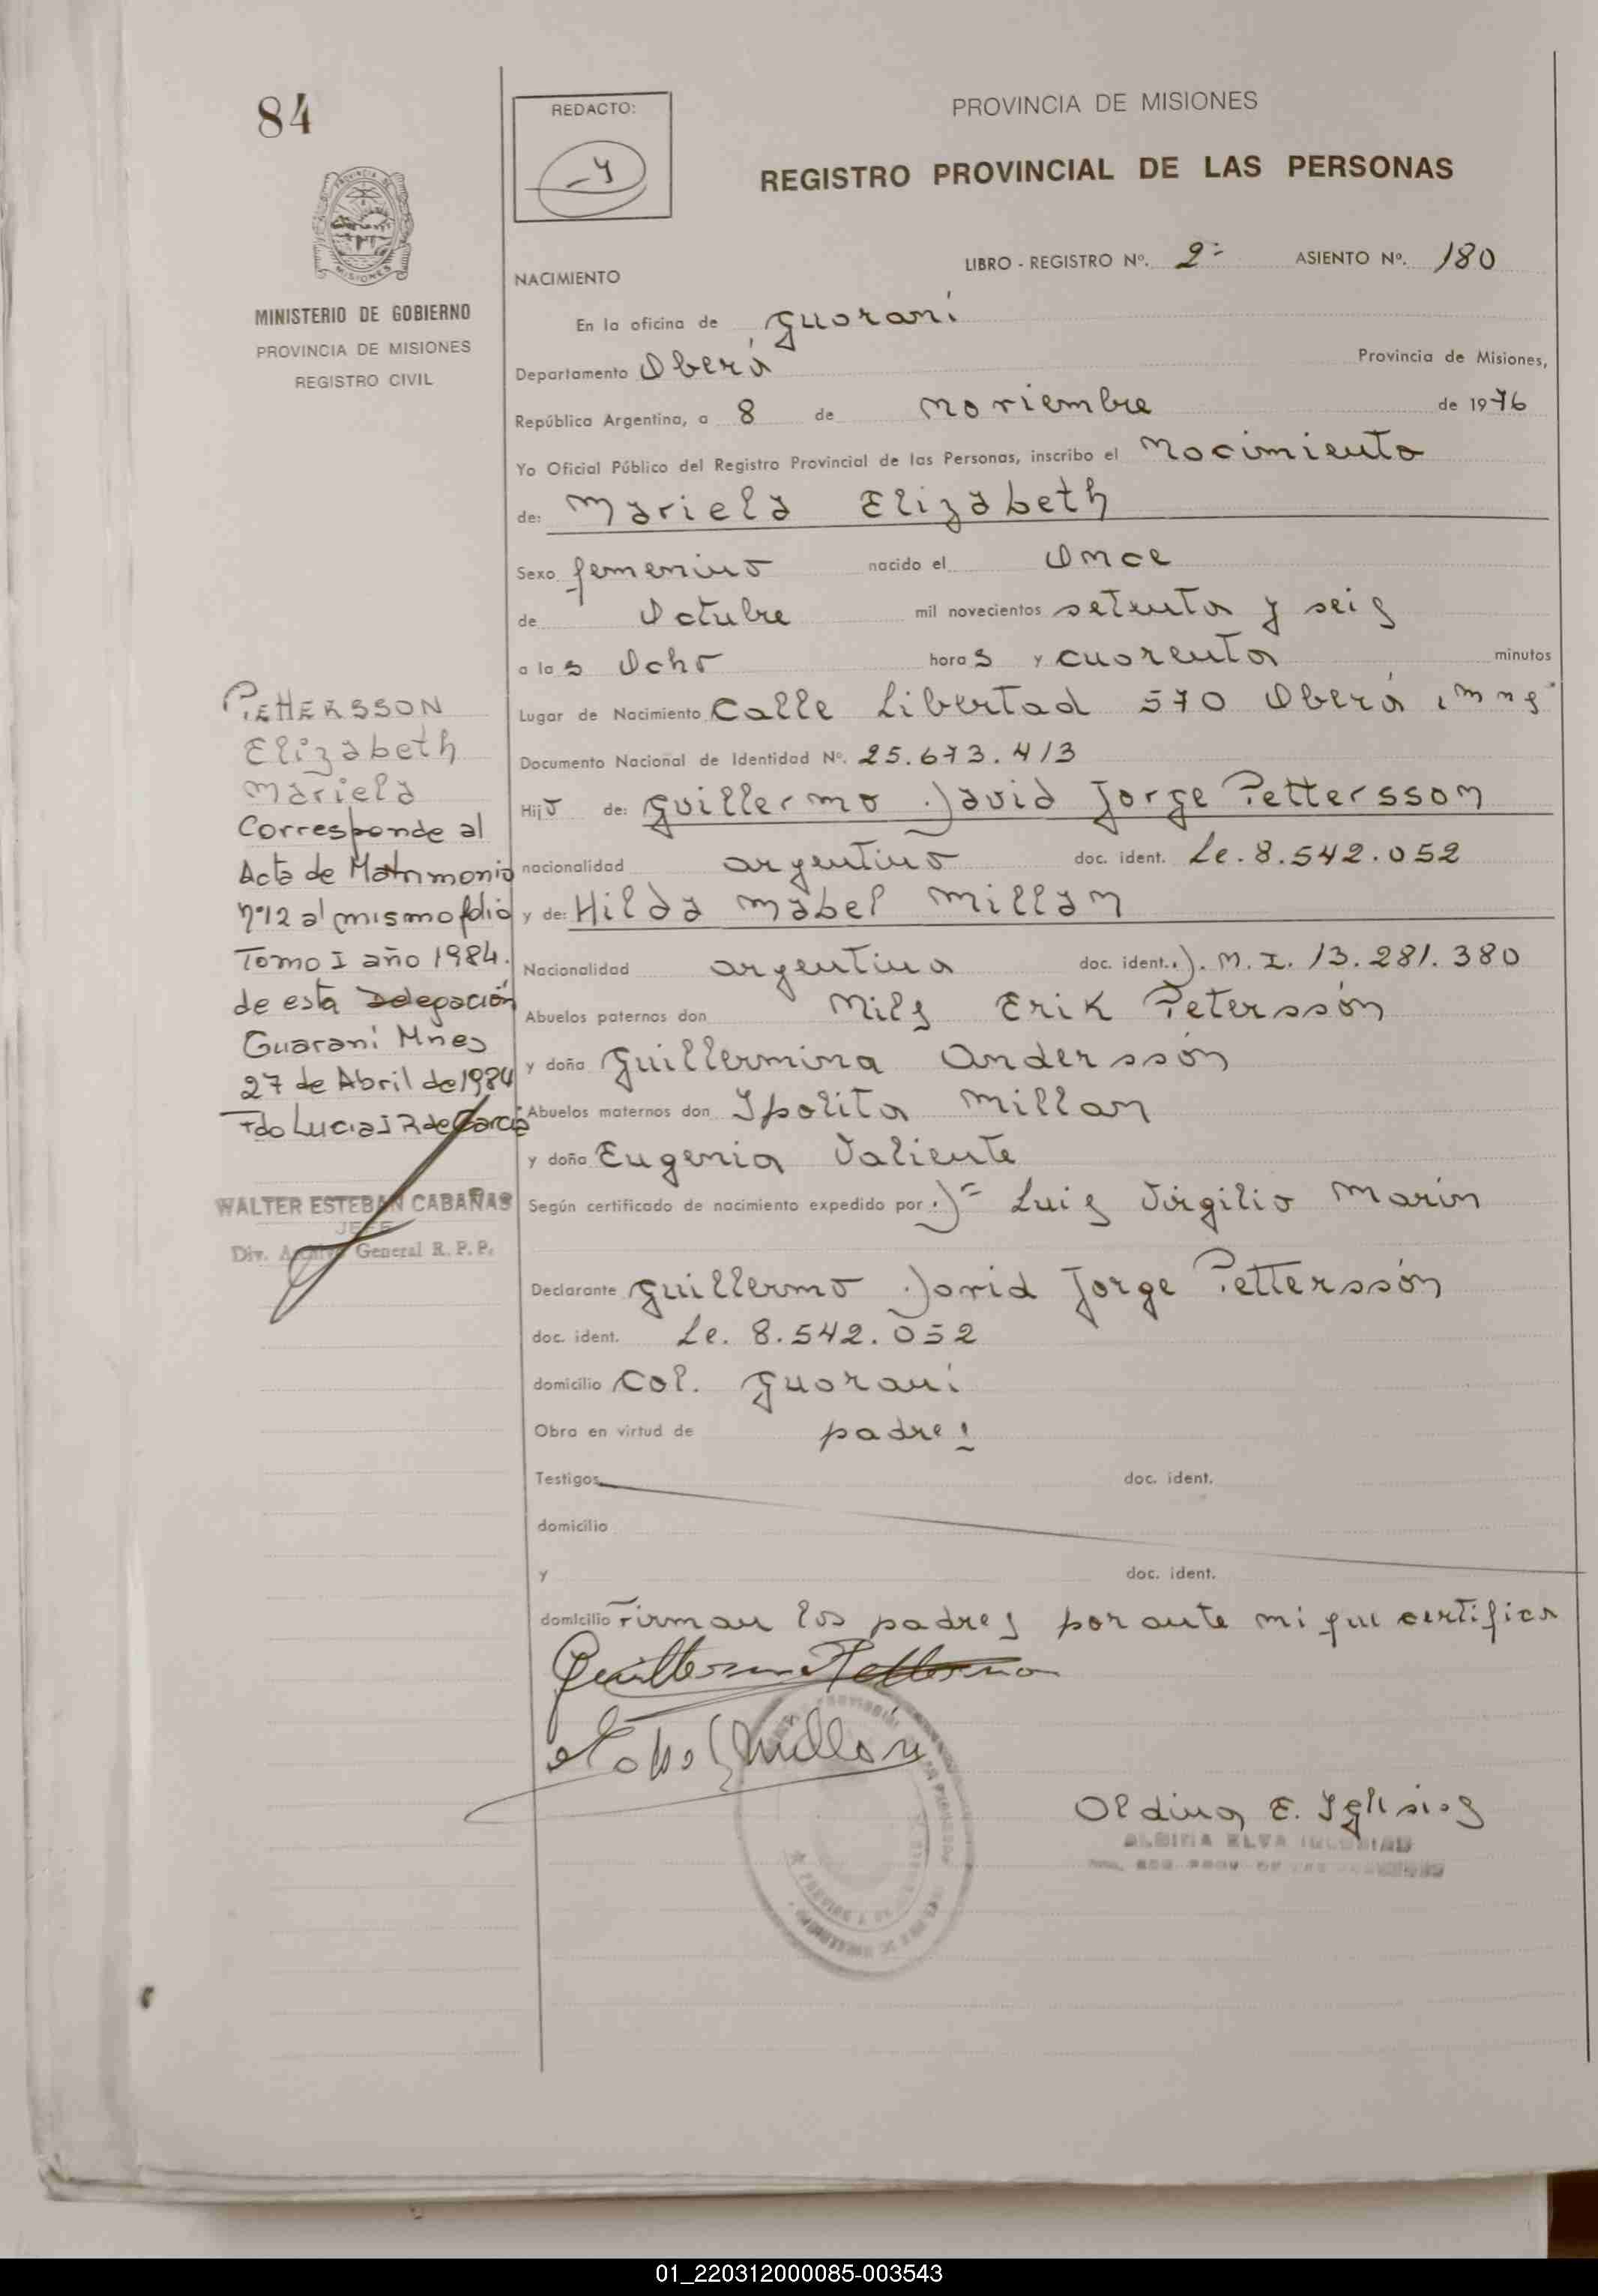 84
REDACTO:
PROVINCIA DE MISIONES
REGISTRO PROVINCIAL DE LAS PERSONAS
MISIONES
MINISTERIO DE GOBIERNO
PROVINCIA DE MISIONES
REGISTRO CIVIL
LIBRO - REGISTRO Nº. 2º ASIENTO Nº. 180
NACIMIENTO
En la oficina de Guaraní
Departamento Oberá Provincia de Misiones,
República Argentina, a 8 de noviembre de 1976
Yo Oficial Público del Registro Provincial de las Personas, inscribo el Nacimiento
de: Mariela Elizabeth
Sexo femenino nacido el Once
de Octubre mil novecientos setenta y seis
a las Ocho horas y cuarenta minutos
Lugar de Nacimiento Calle Libertad 570 Oberá, Mns
Documento Nacional de Identidad Nº. 25.673.413
Hijo de: Guillermo David Jorge Pettersson
nacionalidad argentino doc. ident. Le. 8.542.052
y de: Hilda Mabel Millan
Nacionalidad argentina doc. ident. D.N.I. 13.281.380
Abuelos paternos don Nils Erik Petersson
y doña Guillermina Andersson
Abuelos maternos don Ipolito Millan
y doña Eugenia Valiente
Según certificado de nacimiento expedido por Dr Luis Virgilio Marin
Declarante Guillermo David Jorge Petterssón
doc. ident. Le. 8.542.052
domicilio Col. Guaraní
Obra en virtud de padre
Testigos doc. ident.
domicilio
y doc. ident.
domicilio Firman los padres por ante mi que certifico
Albina E. Iglesias
ALBINA ELVA IGLESIAS
PETTERSSON
Elizabeth
Mariela
Corresponde al
Acta de Matrimonio
Nº12 al mismo folio
Tomo I año 1984.
de esta Delegación
Guaraní Mnes
27 de Abril de 1984
Fdo Lucia J R de Garcia
WALTER ESTEBAN CABAÑAS
JEFE
Div. Archivo General R. P. P.
01_220312000085-003543